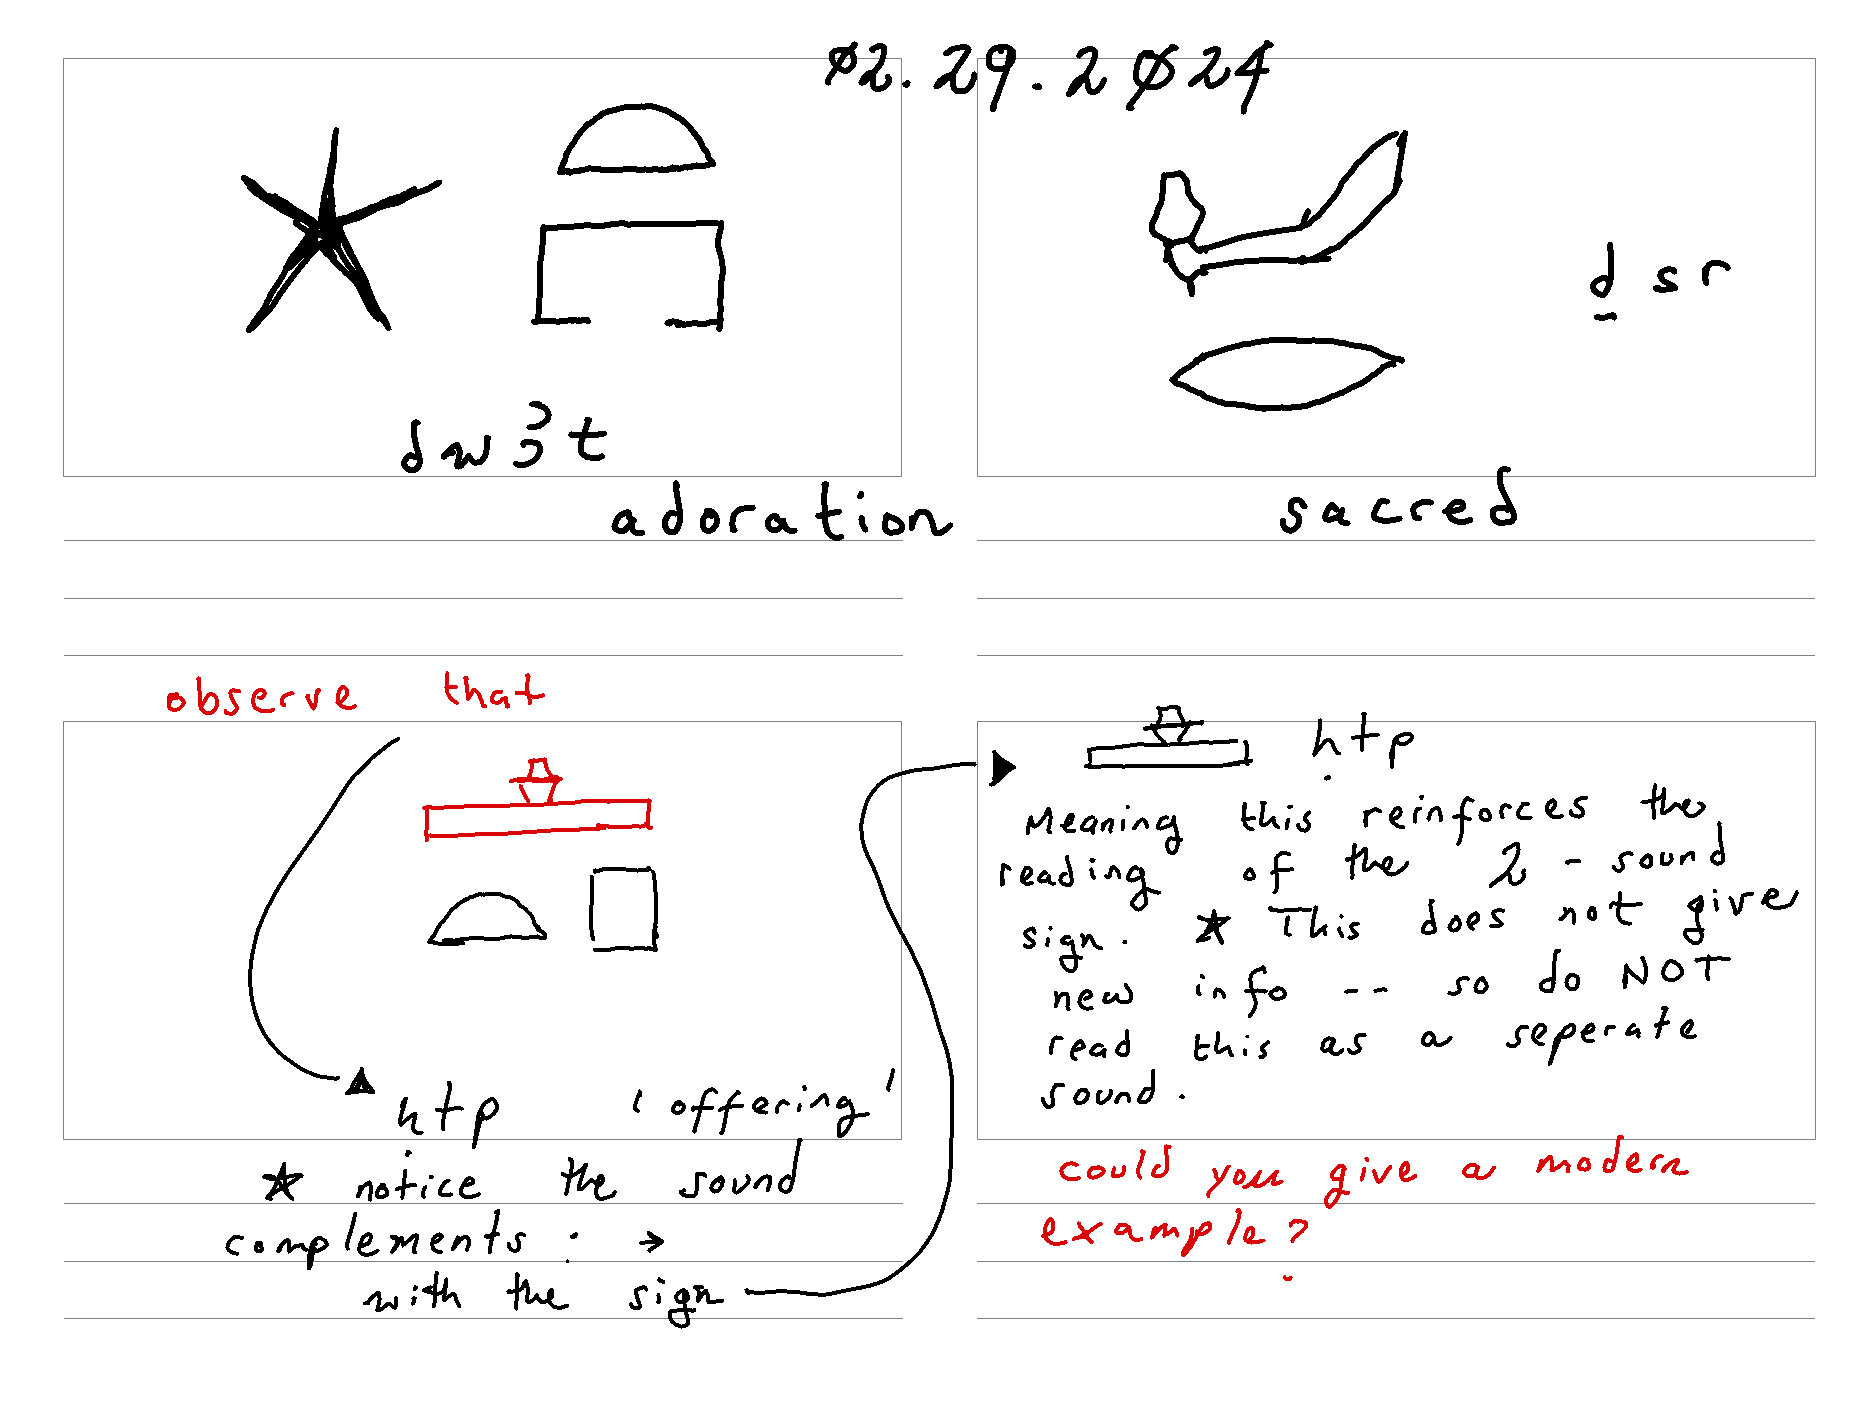 02.29.2024
dwꜣt
adoration
ḏsr
sacred
observe that
ḥtp 'offering'
★ notice the sound
complements : →
with the sign
ḥtp
Meaning this reinforces the
reading of the 2-sound
sign. ★ This does not give
new info -- so do NOT
read this as a seperate
sound.
could you give a modern
example?